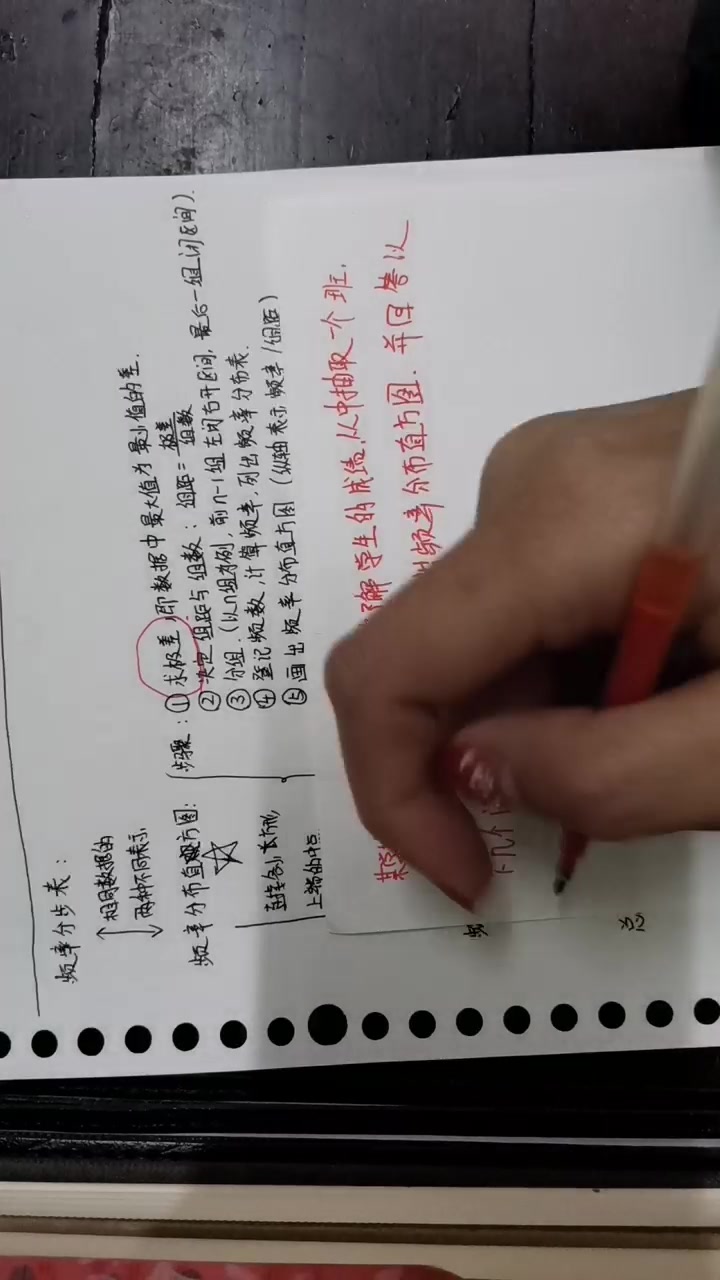 频率分步表:
相同数据的
两种不同表示
频率分布直方图:
步骤:①求极差,即数据中最大值为最小值的差.
②决定组距与组数:组距=极差/组数
③分组.(以n组为例,前n-1组左闭右开区间,最后一组闭区间).
④登记频数,计算频率,列出频率分布表.
⑤画出频率分布直方图(纵轴表示频率/组距)
连接各小长形
上端的中点
了解学生的成绩,从中抽取一个班.
出频率分布直方图.并回答以
下几个